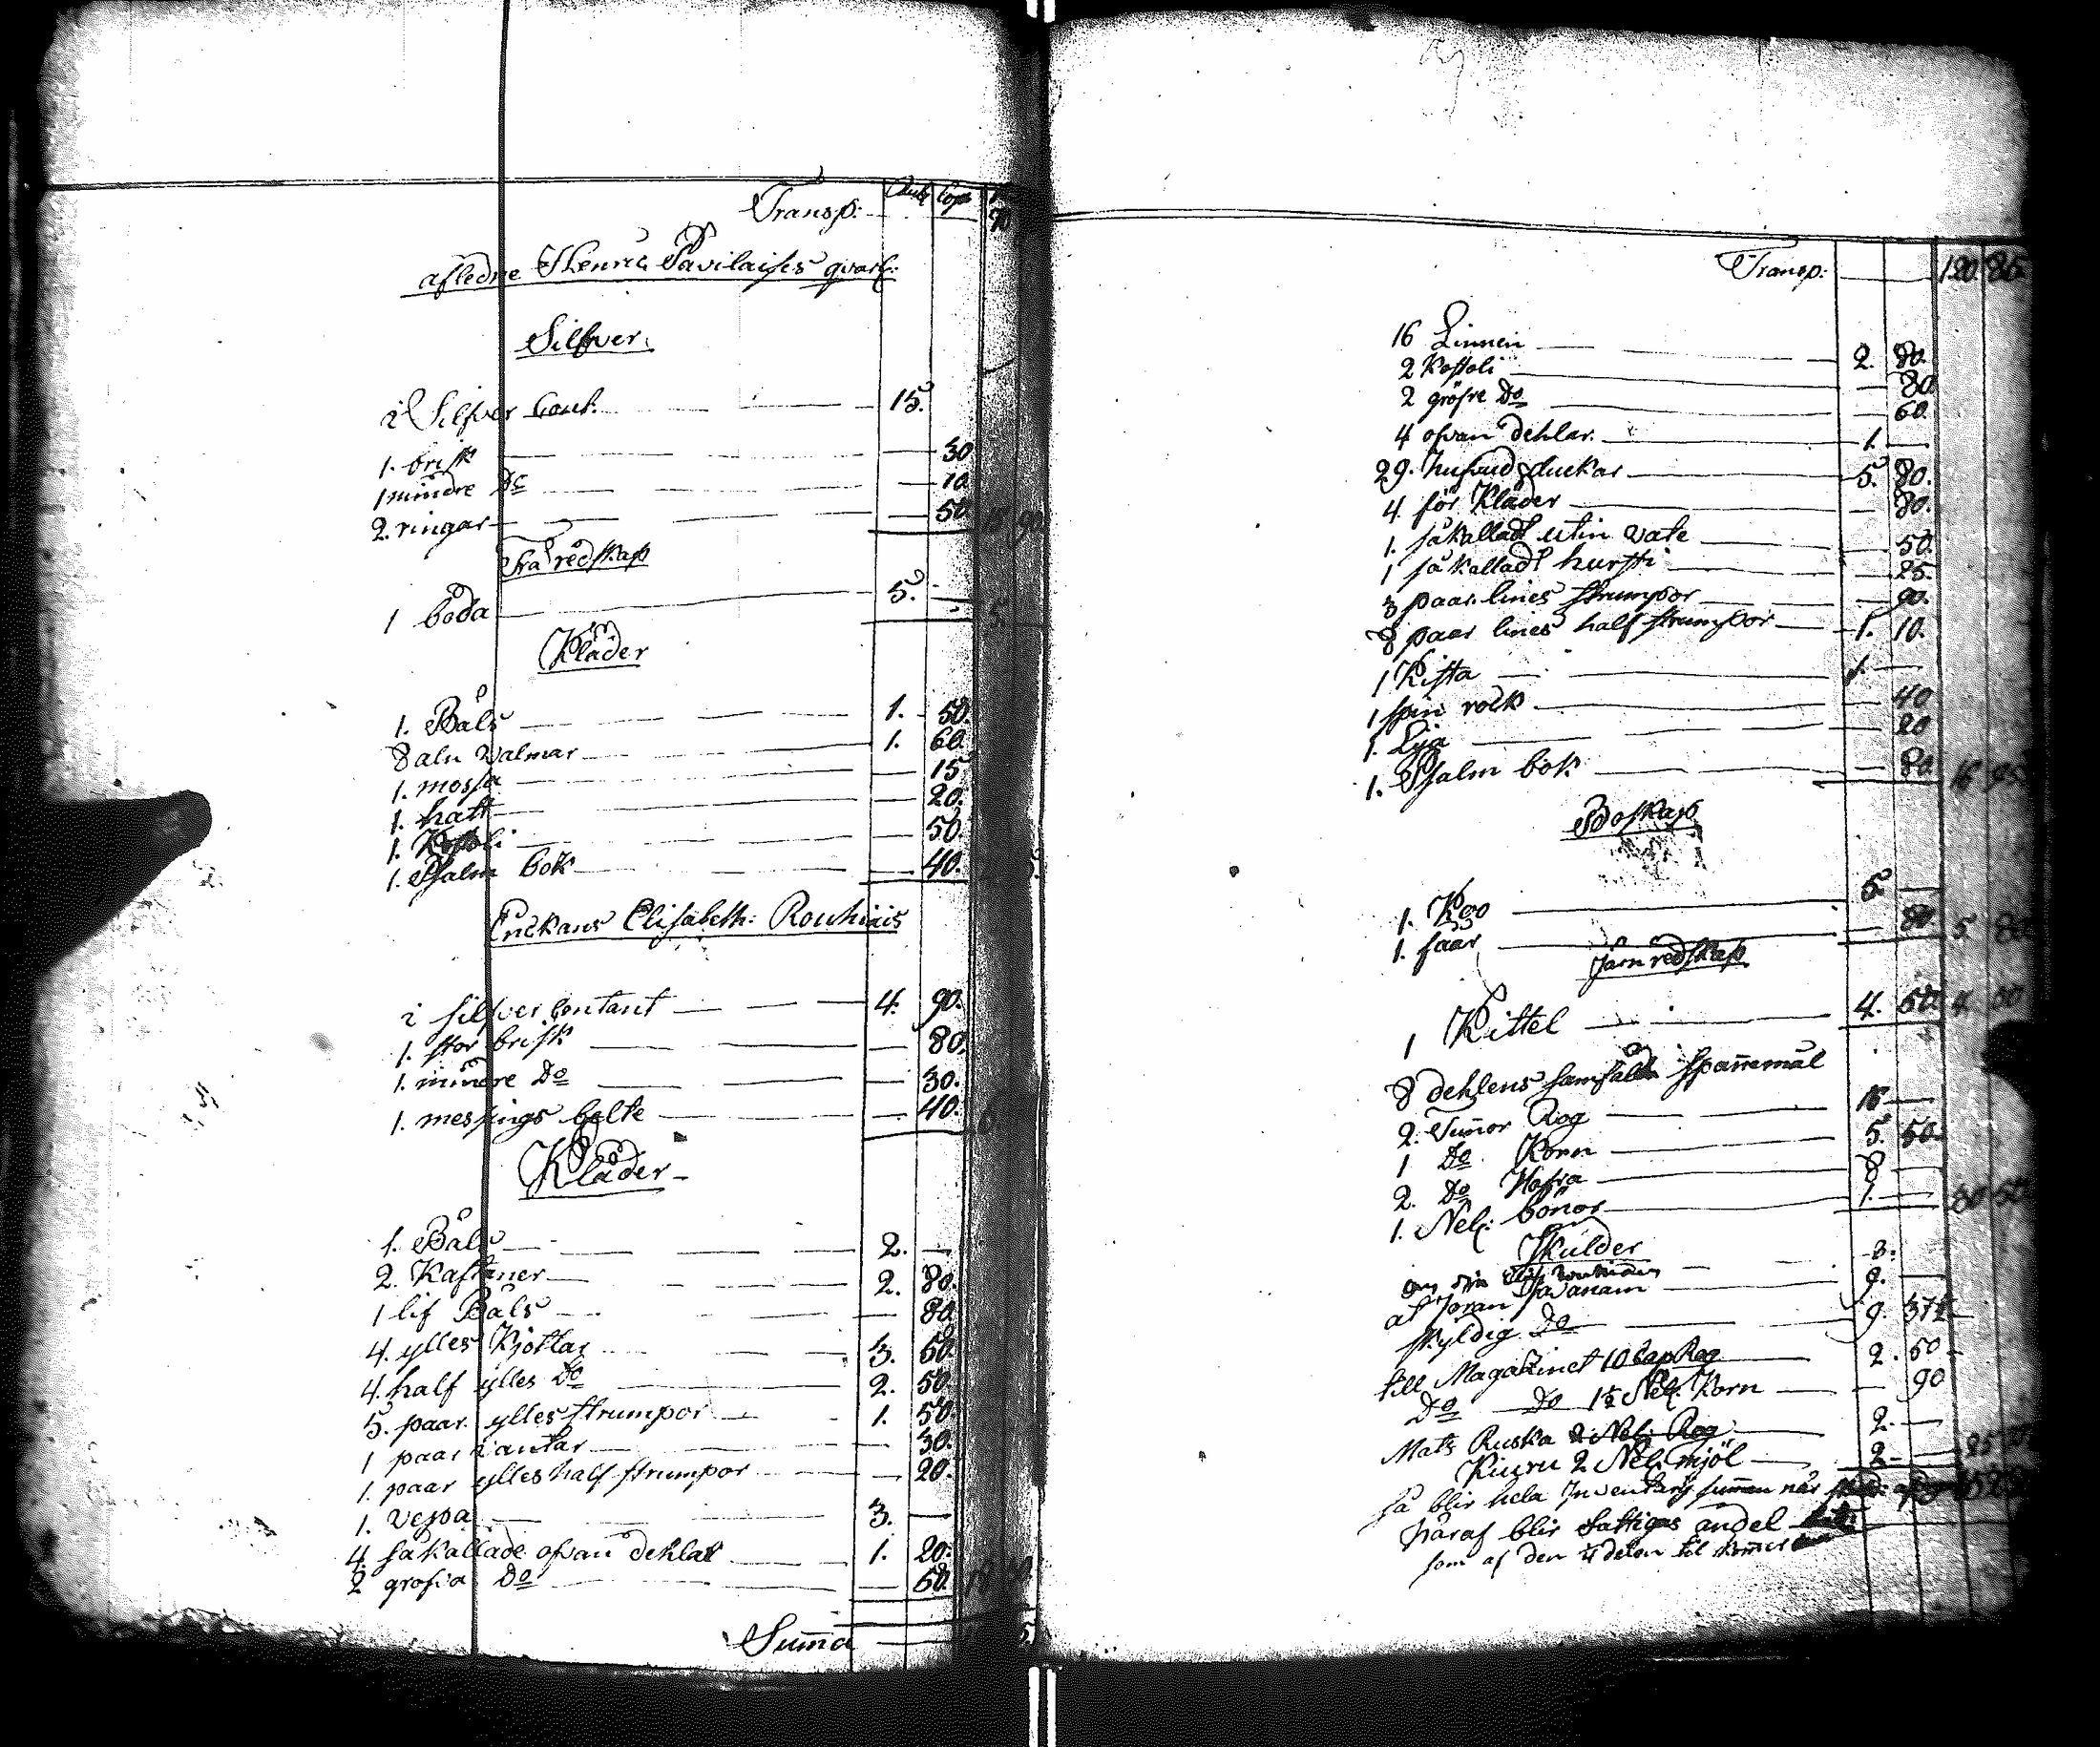 Transp: Rub Cop
afledne Henric Pavilaises qvarl:
Silfver.
i Silfver Cont. 15.
1. brisk 30
1 mindre Do 10
2. ringar 50. 15 90
Trä redskap
1 boda 5. 5
Kläder
1. Påls 1. 50.
8 aln walmar 1. 60.
1. mossa 15
1. hatt 20.
1. Kostoli 50
1. Psalm bok 40.
Enckans Elisabeth: Rouhiais
i silfver Contant 4. 90.
1. stor brisk 80.
1. mindre Do 30.
1. messings belte 40.
Kläder
1. Påls 2.
2. Kaftaner 2. 80.
1 lif Påls 80.
4. ylles Kjortlar 3. 50.
4. half ylles Do 2. 50.
5. paar ylles strumpor 1. 50.
1 paar vantar 30.
1. paar ylles half strumpor 20.
1. vespa 3.
4. så kallade ofvan dehlar 1. 20.
2 grofva Do 50. 18
Summa
Transp: 120. 85.
16 Linnen 2. 80.
2 Kostoli 80.
2 gröfre Do 60.
4 ofvan dehlar. 1.
29. hufvud duckar 5. 80.
4 för Kläder 80.
1. så kallad utin vate 50.
1 så kallad hursti 25.
3 paar lines strumpor 90.
8 paar lines half strumpor 1. 10.
1 Kista 1.
1 spin rock 40
1. Lya 20
1. Psalm bok 80 16 95
Boskap
1. Koo 5.
1. faar 80 5 80
Järn redskap
1 Kittel 4. 50. 4 50
8 dehlens samfälda Spannemål
2. Tunnor Rog 16
1 Do Korn 5. 50.
2. Do Hafra 8
1. Nel: bönor 1. 30 50
Skulder
3.
af Jöran Savanain 9.
skyldig Do 9. 37½
till Magazinet 10 Cap Rog 2. 50
Do Do 1½ Nel: Korn 90
Mats Ruska 2 Nel: Rog 2.
Kiuru 2 Nel: mjöl 2
så blir hela Inventarii summan när
häraf blir fattigas andel
som af den delen til kommer